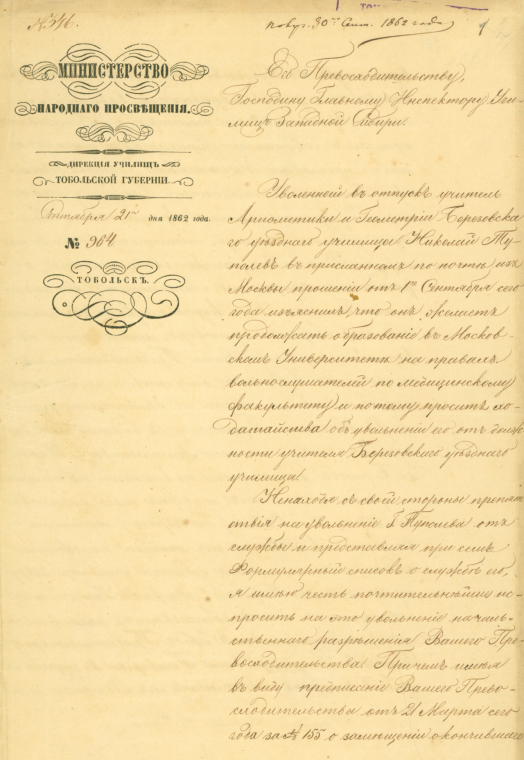 № 346.
получ. 30го Сент. 1862 года
1
МИНИСТЕРСТВО
НАРОДНАГО ПРОСВѢЩЕНІЯ.
ДИРЕКЦІЯ УЧИЛИЩЪ
ТОБОЛЬСКОЙ ГУБЕРНИИ.
Сентября 21го дня 1862 года.
№ 964
ТОБОЛЬСКЪ.
Его Превосходительству,
Господину Главному Инспектору Учи-
лищъ Западной Сибири.
Уволенный въ отпускъ учитель
Ариѳметики и Геометріи Березовска-
го уѣзднаго училища Николай Ту-
полевъ въ присланномъ по почтѣ изъ
Москвы прошеніи отъ 1го Сентября сего
года изъяснилъ, что онъ желаетъ
продолжать образованіе въ Москов-
скомъ Университетѣ на правахъ
вольнослушателей по медицинскому
факультету и потому проситъ хо-
датайства объ увольненіи его отъ долж-
ности учителя Березовскаго уѣзднаго
училища.
Ненаходя съ своей стороны препят-
ствія на увольненіе Г. Туполева отъ
службы и представляя при семъ
Формулярный списокъ о службѣ его,
я имѣю честь почтительнѣйше ис-
просить на это увольненіе началь-
ственнаго разрѣшенія Вашего Пре-
восходительства. Причемъ имѣя
въ виду предписаніе Вашего Прево-
сходительства отъ 21 Марта сего
года за № 155 о замѣщеніи окончившаго